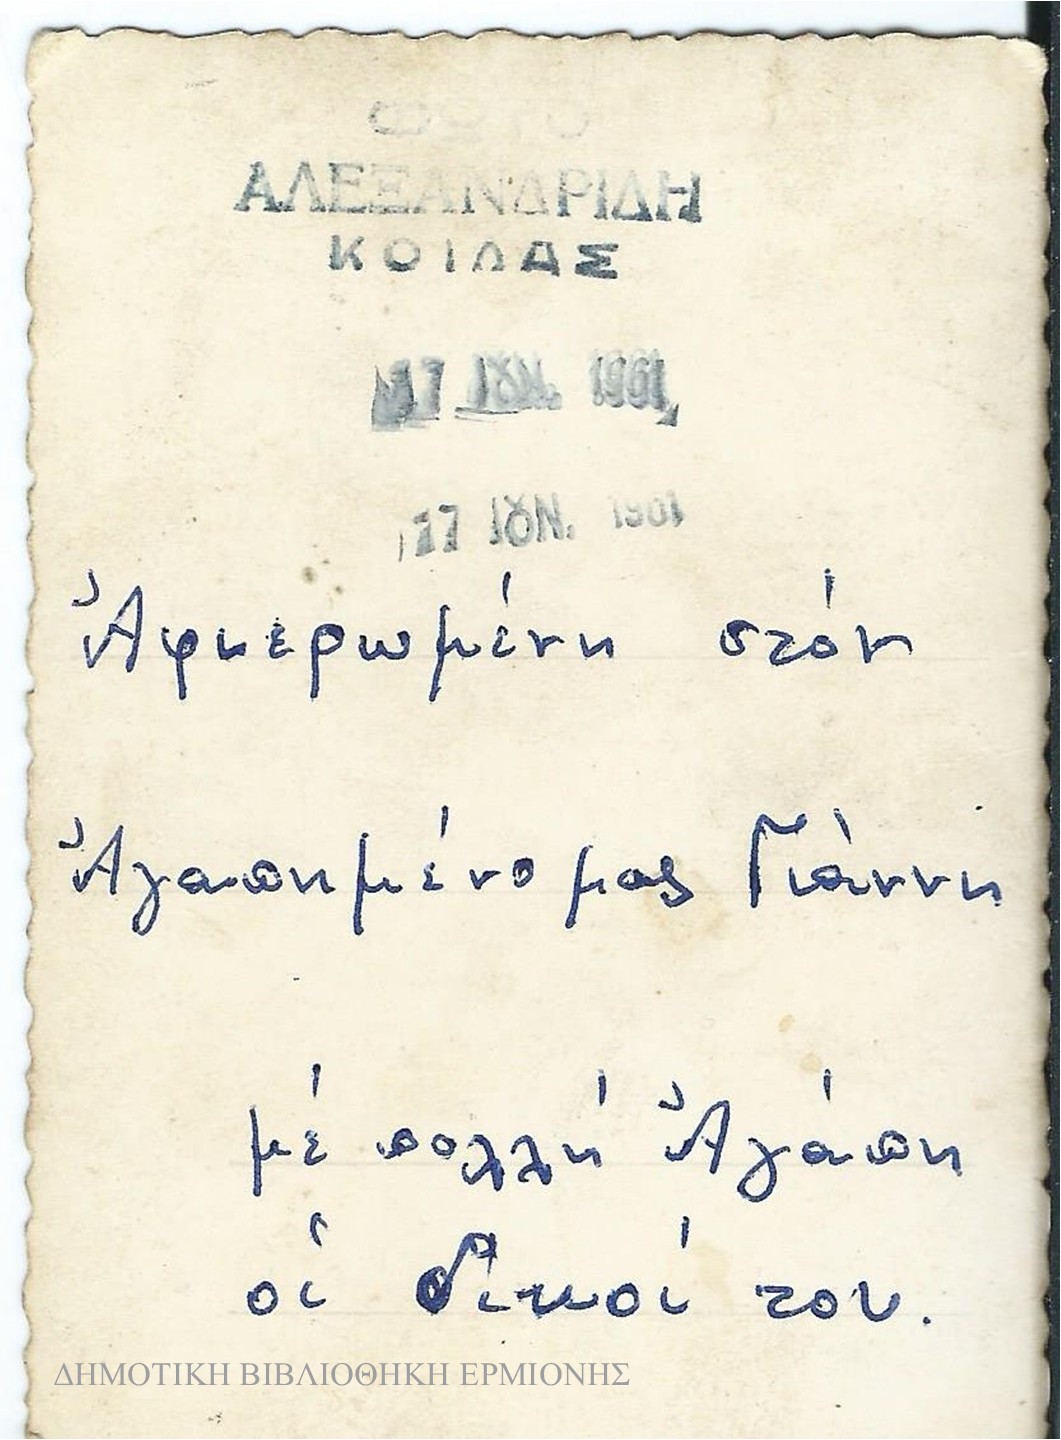 ΦΩΤΟ
ΑΛΕΞΑΝΔΡΙΔΗ
ΚΟΙΛΑΣ
17 ΙΟΥΝ. 1961
17 ΙΟΥΝ. 1961
Ἀφιερωμένη στόν
Ἀγαπημένο μας Γιάννη
μέ πολλή Ἀγάπη
οἱ δικοί του.
ΔΗΜΟΤΙΚΗ ΒΙΒΛΙΟΘΗΚΗ ΕΡΜΙΟΝΗΣ